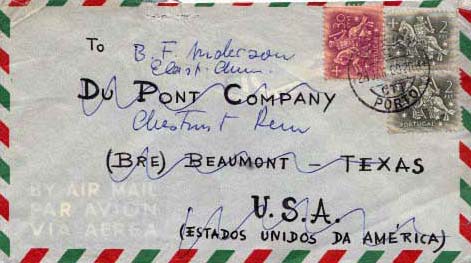 To
B. F. Anderson
Elast. Chem.
DU PONT COMPANY
Chestnut Run
(BRE) BEAUMONT — TEXAS
U.S.A.
(ESTADOS UNIDOS DA AMÉRICA)
BY AIR MAIL
PAR AVION
VIA AEREA
50
2
2
CTT
PORTO
PORTUGAL